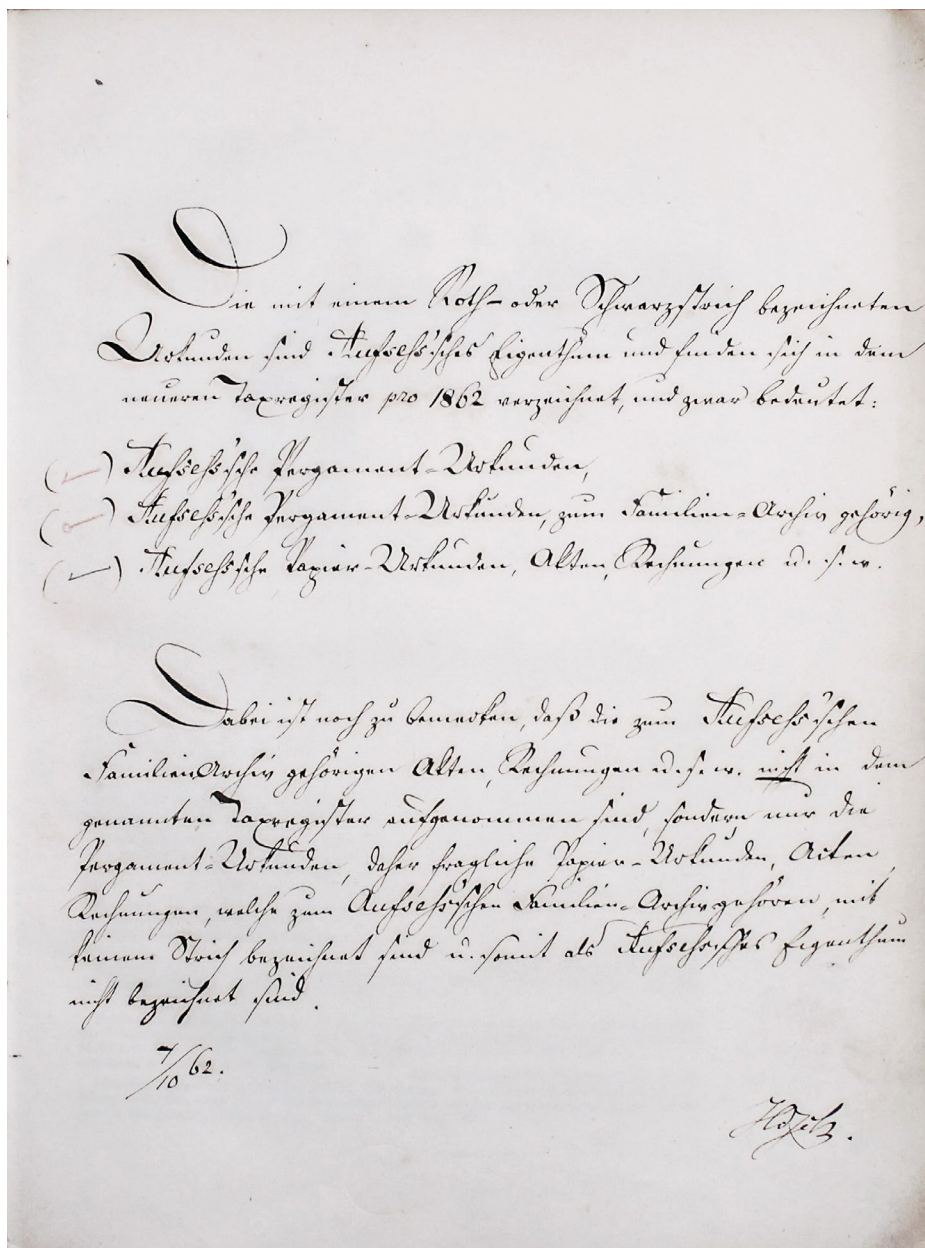 Die mit einem Roth- oder Schwarzstrich bezeichneten
Urkunden sind Aufseß'sches Eigenthum und finden sich in dem
neueren Taxregister pro 1862 verzeichnet, und zwar bedeutet:
(—) Aufseß'sche Pergament-Urkunden,
( ) Aufseß'sche Pergament-Urkunden, zum Familien-Archiv gehörig,
(—) Aufseß'sche Papier-Urkunden, Akten, Rechnungen u. s. w.
Dabei ist noch zu bemerken, daß die zum Aufseß'schen
Familien Archiv gehörigen Akten, Rechnungen u. s. w. nicht in dem
genannten Taxregister aufgenommen sind, sondern nur die
Pergament-Urkunden, daher fragliche Papier-Urkunden, Akten,
Rechnungen, welche zum Aufseß'schen Familien-Archiv gehören, mit
keinem Strich bezeichnet sind u. somit als Aufseß'sches Eigenthum
nicht bezeichnet sind.
7/10 62.